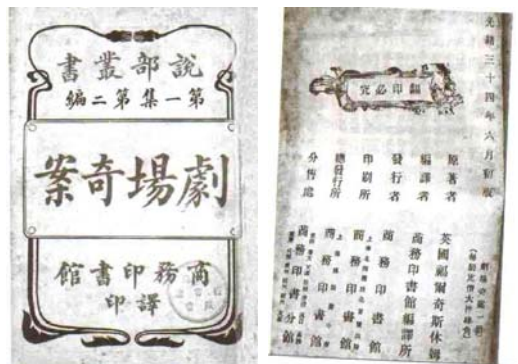 說部叢書
第一集第二編
劇場奇案
商務印書館
譯印
光緒三十四年六月初版
翻印必究
劇場奇案一冊
原著者 英國福爾奇斯休姆
編譯者 商務印書館編譯所
發行者 商務印書館
印刷所 商務印書館
總發行所 商務印書館
分售處 商務印書分館